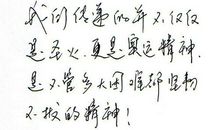 我们传递的并不仅仅
是圣火,更是奥运精神.
是不管多大困难都坚韧
不拔的精神!